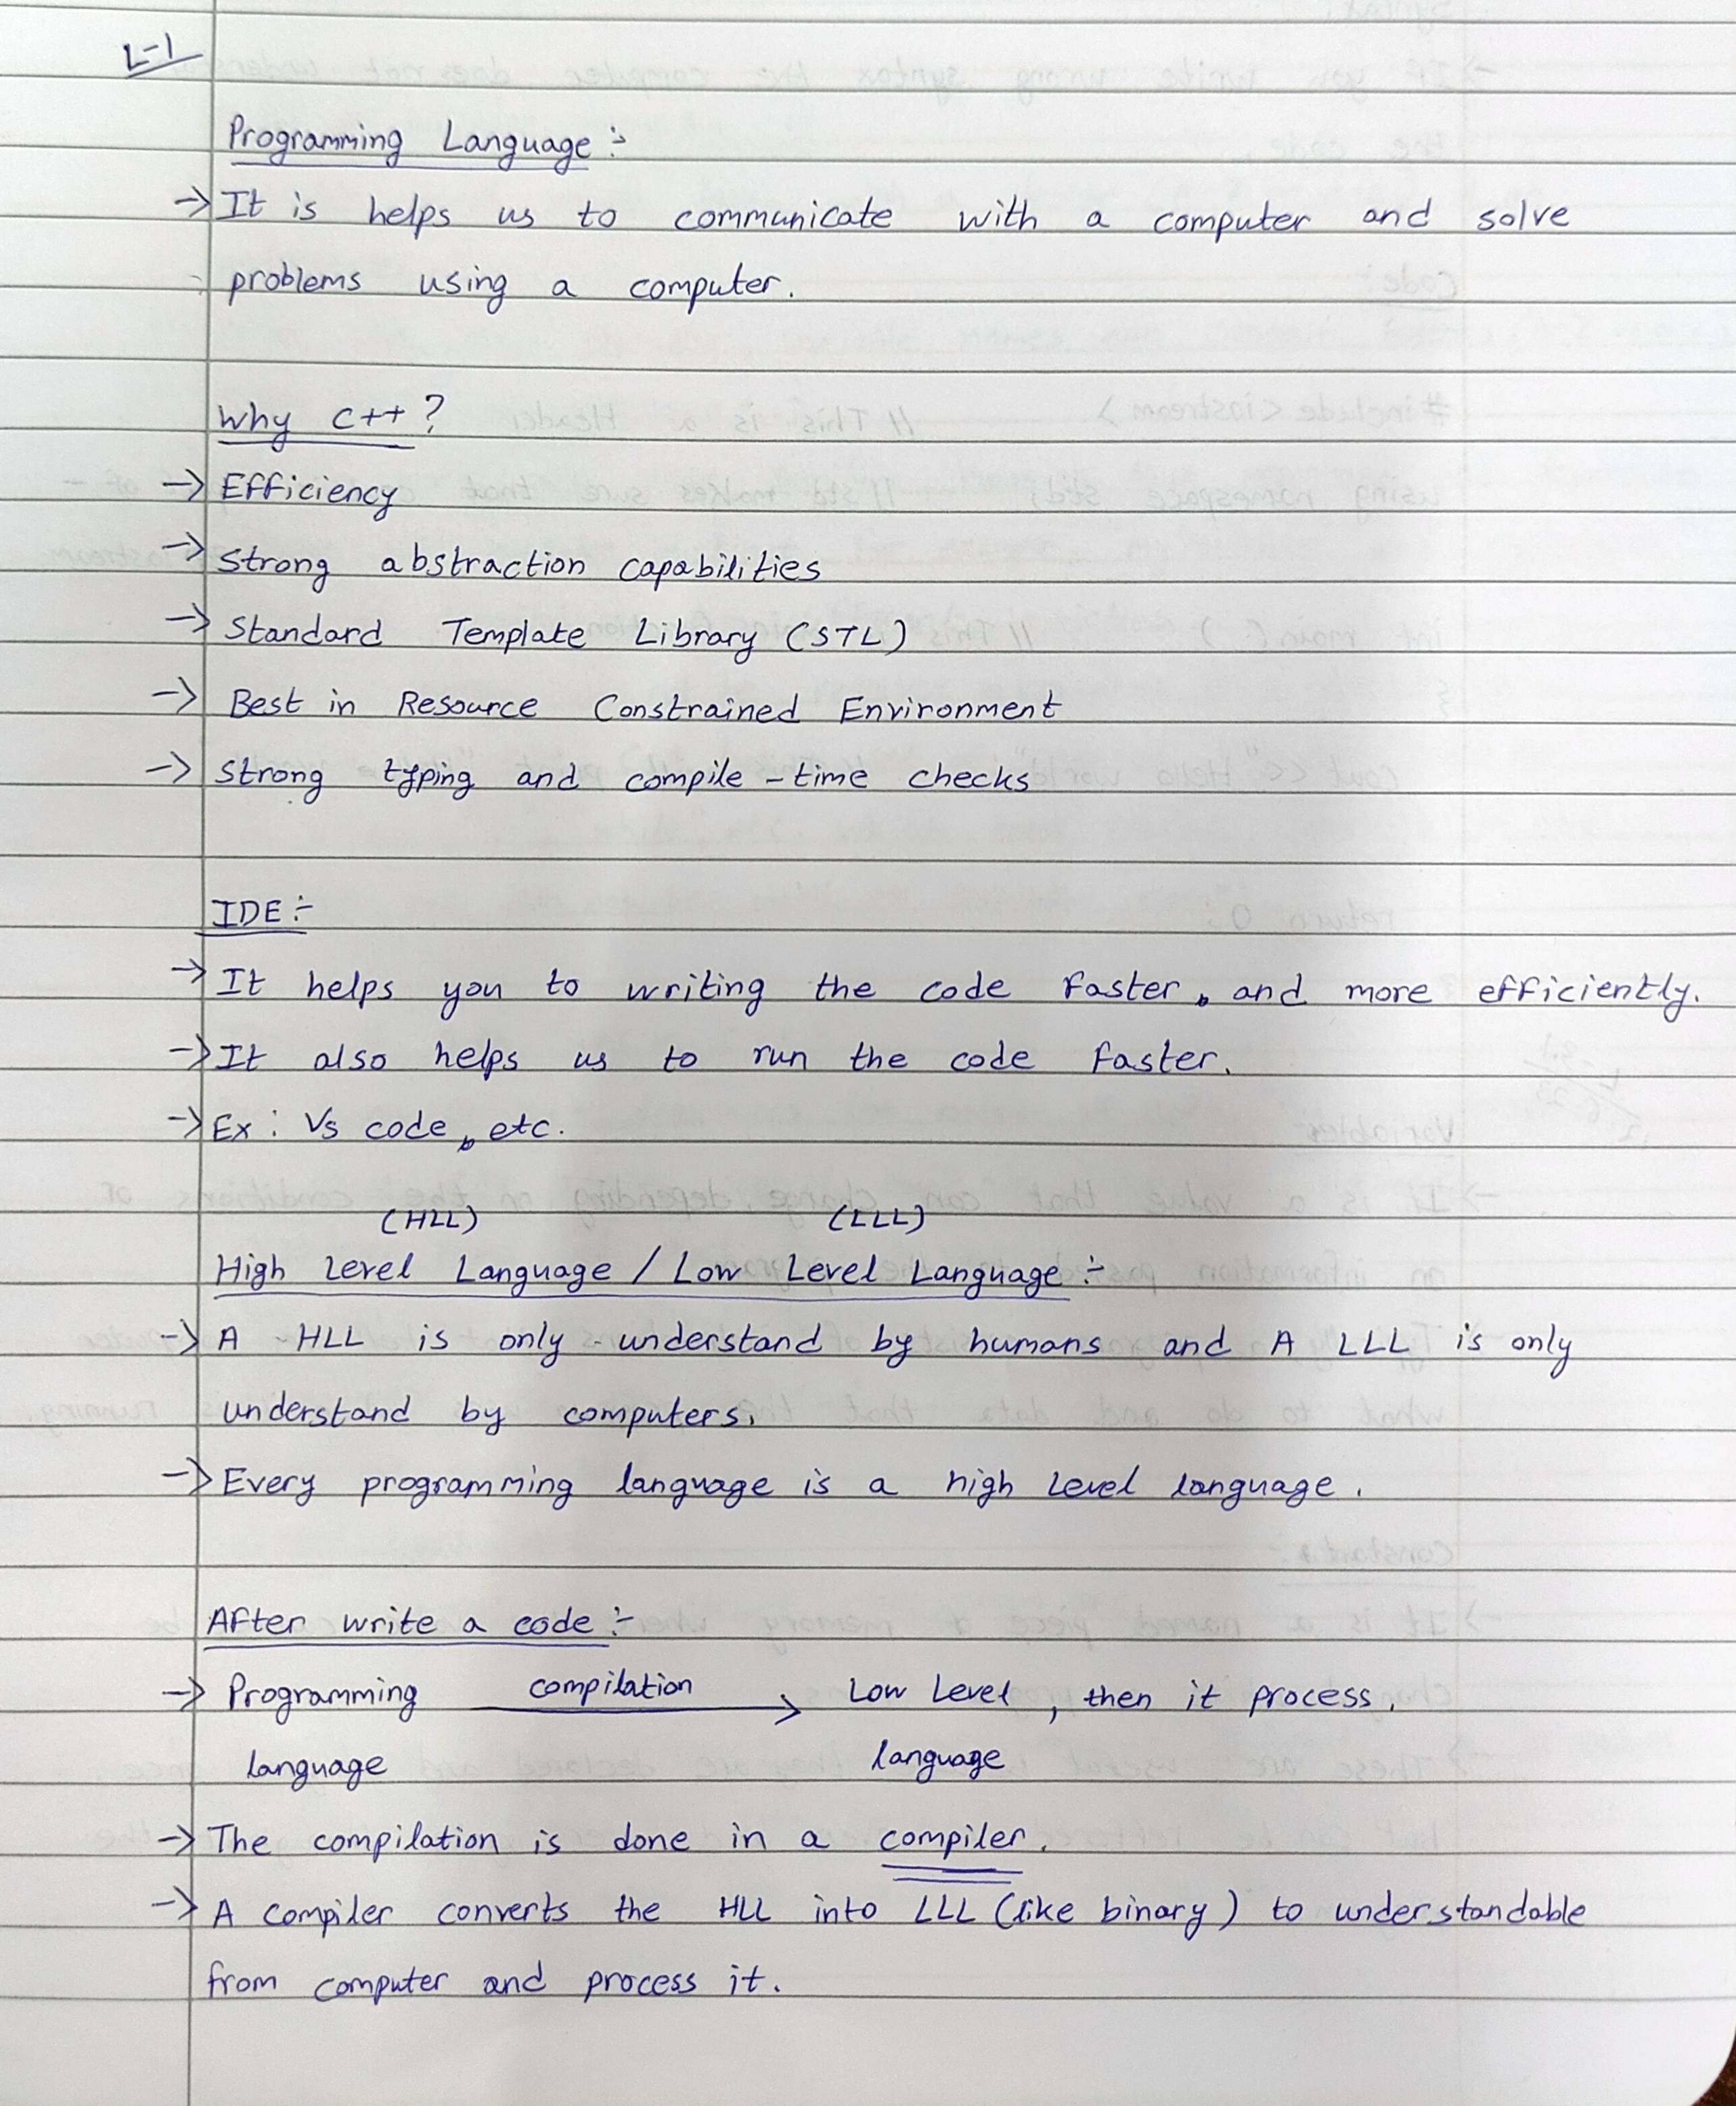 L-1
Programming Language :-
→ It is helps us to communicate with a computer and solve
problems using a computer.
Why C++ ?
→ Efficiency
→ Strong abstraction capabilities
→ Standard Template Library (STL)
→ Best in Resource Constrained Environment
→ Strong typing and compile-time checks
IDE :-
→ It helps you to writing the code faster, and more efficiently.
→ It also helps us to run the code faster.
→ Ex : Vs code, etc.
(HLL) (LLL)
High Level Language / Low Level Language :-
→ A HLL is only understand by humans and A LLL is only
understand by computers.
→ Every programming language is a high level language.
After write a code :-
→ Programming compilation → Low Level, then it process.
language language
→ The compilation is done in a compiler.
→ A compiler converts the HLL into LLL (like binary) to understandable
from computer and process it.